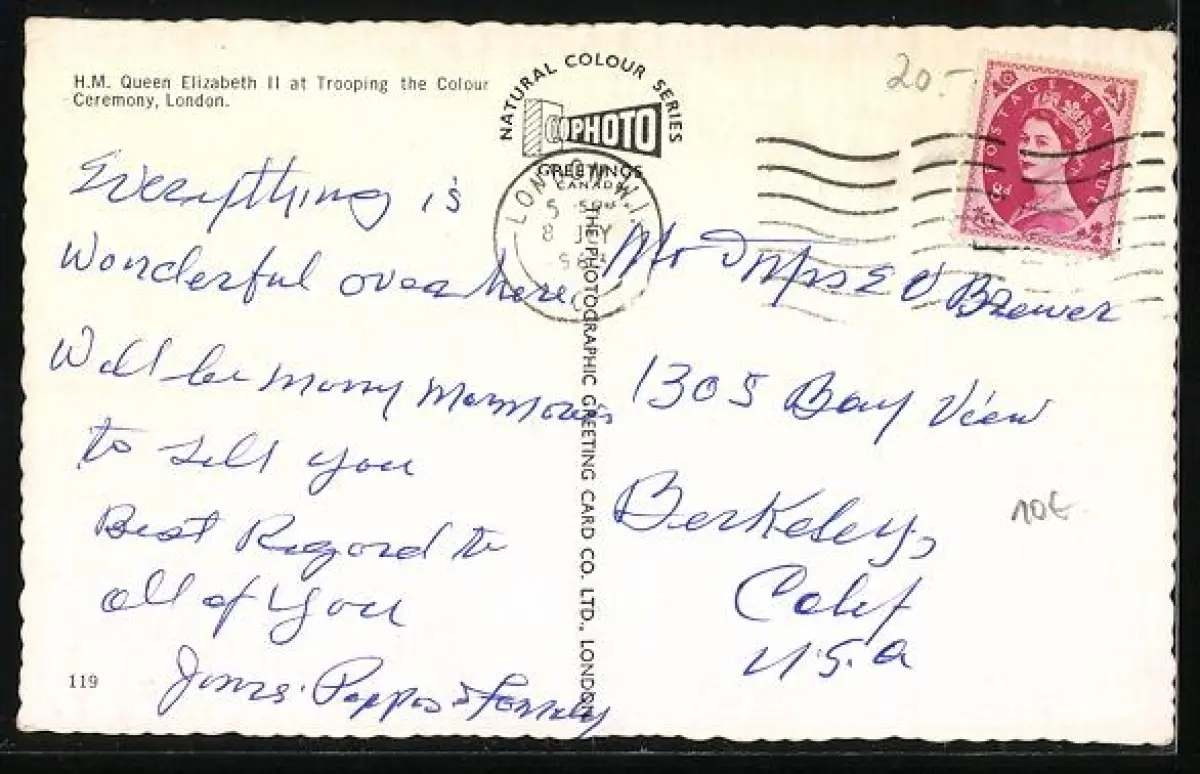 H.M. Queen Elizabeth II at Trooping the Colour
Ceremony, London.
NATURAL COLOUR SERIES
PHOTO
GREETINGS
CANADA
20.-
POSTAGE REVENUE
LONDON W.1.
8 JLY
Everything is
Wonderful over here
Will be many
to tell you
Best Regard to
all of you
James Pappas & Family
119
THE PHOTOGRAPHIC GREETING CARD CO. LTD., LONDON
Mr Mrs E Brewer
1305 Bay View
Berkeley,
Calif
U.S.A
10€